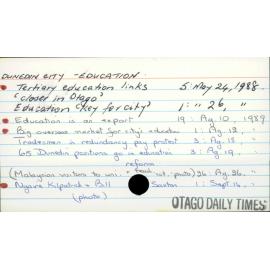 DUNEDIN CITY - EDUCATION
Tertiary education links 5: May 24, 1988
'closer in Otago'
Education 'key for city' 1: " 26, "
Education is an export 19: Ag. 10, 1989
Big overseas market for city's education 1: Ag. 12, "
Tradesmen is redundancy pay protest 3: Ag. 18, "
65 Dunedin positions go in education 3: Ag. 19, "
reforms
(Malaysian visitors to uni. + photo) 26: Ag. 26, "
Ngaire Kilpatrick + Bill Sexton 1: Sept. 14, "
(photo)
OTAGO DAILY TIMES